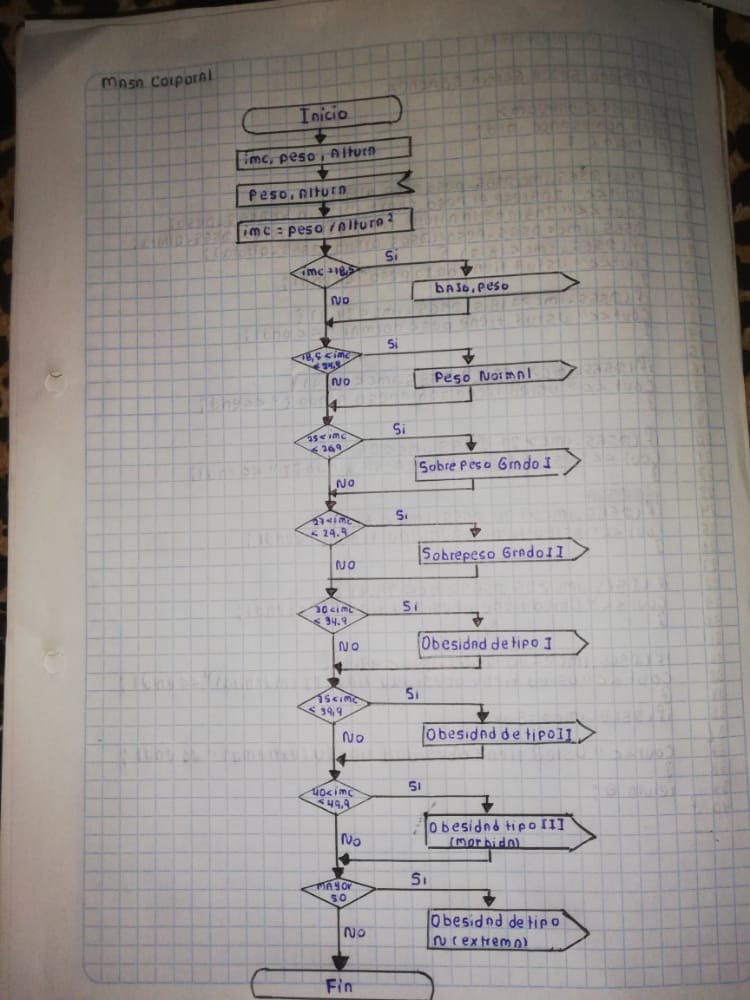 Masa Corporal
Inicio
imc, peso, Altura
Peso, Altura
imc = peso / Altura²
imc =18,5
Si
No
bajo, peso
18,5 < imc
≤ 24,9
Si
No
Peso Normal
25 < imc
≤ 26,9
Si
No
Sobrepeso Grado I
27 < imc
≤ 29.9
Si
No
Sobrepeso Grado II
30 < imc
≤ 34.9
Si
No
Obesidad de tipo I
35 < imc
≤ 39,9
Si
No
Obesidad de tipo II
40 < imc
≤ 49,9
Si
No
Obesidad tipo III
(morbida)
mayor
50
Si
No
Obesidad de tipo
N (extrema)
Fin